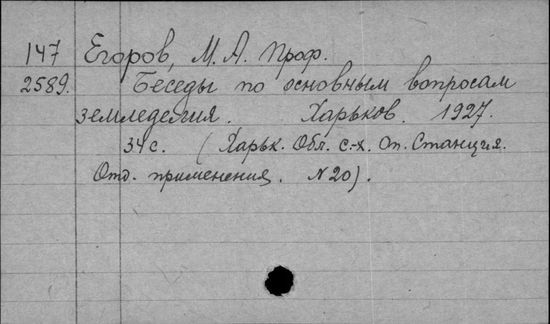 147 Егоров, М. А. проф.
2589. Беседы по основным вопросам
земледелия. Харьков. 1927.
34 с. (Харьк. Обл. с.-х. Оп. Станция.
Отд. применения. N 20).